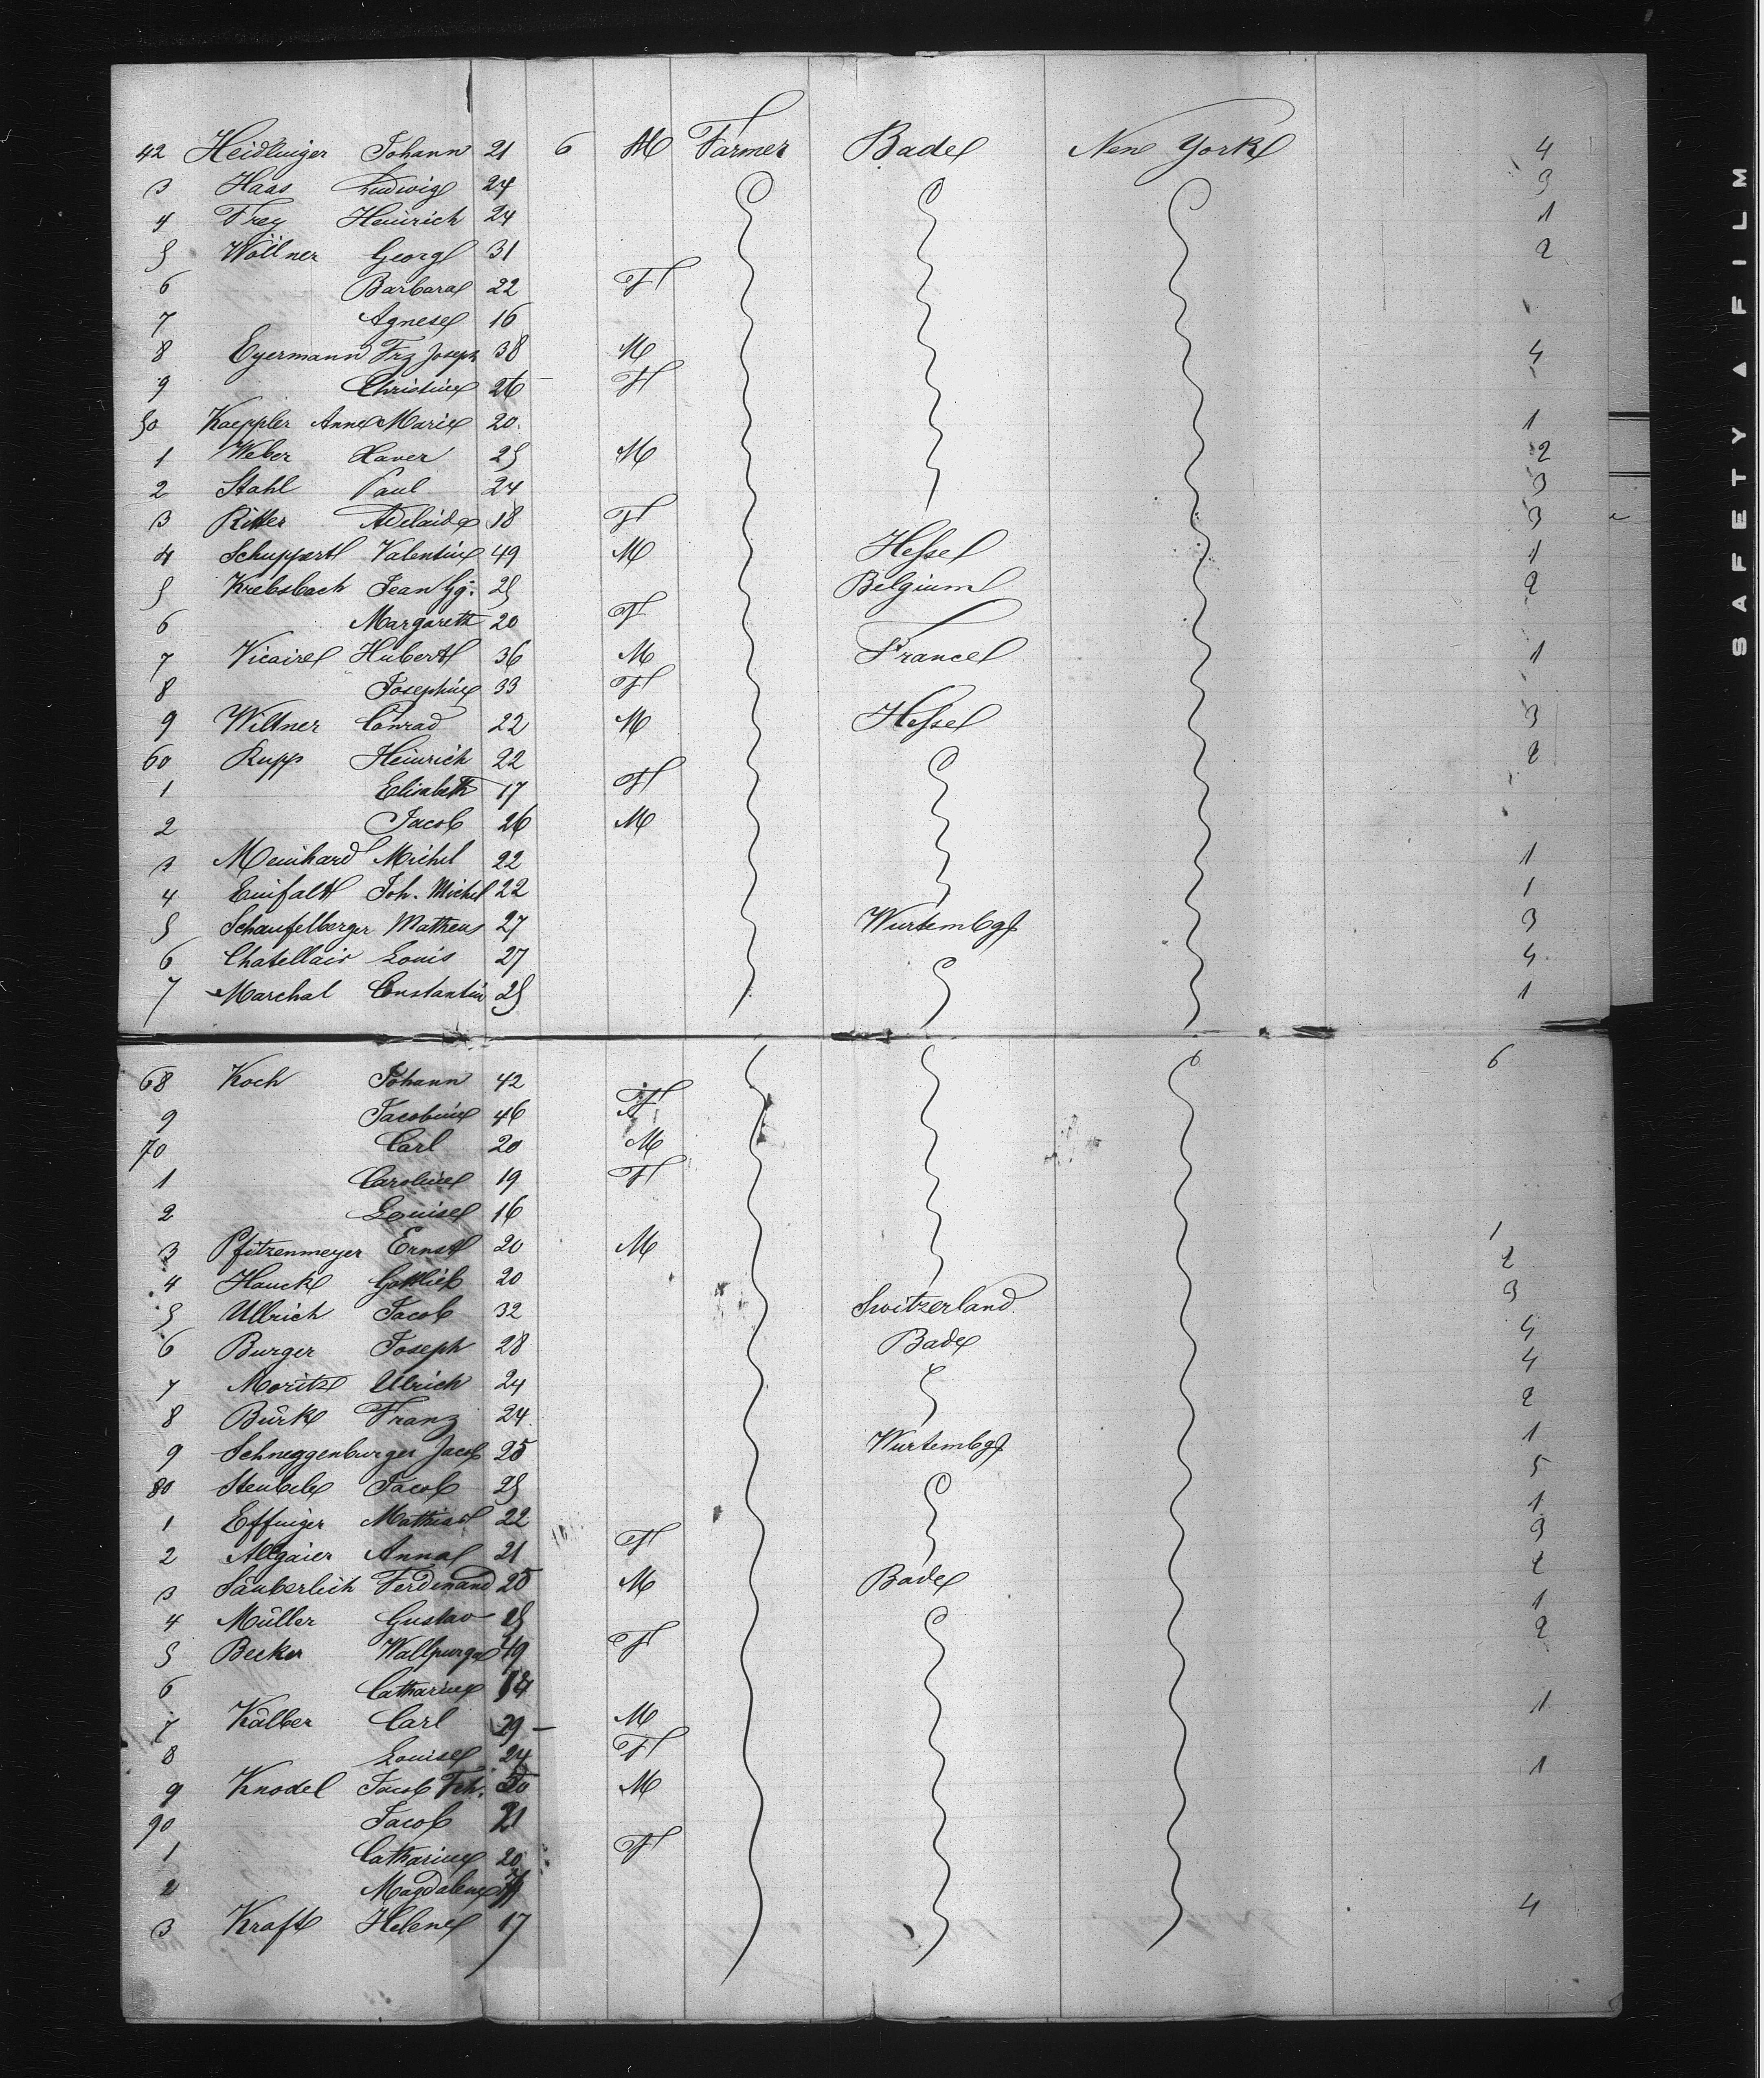 42 Heidlinger Johann 21 6 M Farmer Bade New York 4
3 Haas Ludwig 24 3
4 Frey Heinrich 24 1
5 Wöllner Georg 31 2
6 Barbara 22 F
7 Agnese 16
8 Eyermann Frz Joseph 38 M 4
9 Christine 26 F
50 Kaeppler Anne Marie 20. 1
1 Weber Xaver 25 M 2
2 Stahl Paul 24 3
3 Ritter Adelaide 18 F 3
4 Schuppert Valentine 49 M Hesse 1
5 Krebsbach Jean Gg. 25 Belgium 2
6 Margareth 20 F
7 Vicaire Hubert 36 M France 1
8 Josephine 33 F
9 Wiltner Conrad 22 M Hesse 3
60 Rupp Heinrich 22 2
1 Elisabeth 17 F
2 Jacob 26 M
3 Meinhard Michel 22 1
4 Einfalt Joh. Michel 22 1
5 Schaufelberger Matheus 27 Wurtembg 3
6 Chatellair Louis 27 5
7 Marchal Constantin 25 1
68 Koch Johann 42 6
9 Jacobine 46 F
70 Carl 20 M
1 Caroline 19 F
2 Louise 16
3 Pfitzenmeyer Ernst 20 M 1
4 Hauck Gottlieb 20 2
5 Ullrich Jacob 32 Switzerland 3
6 Burger Joseph 28 Bade 5
7 Moritz Ulrich 24 4
8 Bürk Franz 24 2
9 Schneggenburger Jacob 25 Wurtembg 1
80 Steubele Jacob 25 5
1 Effinger Mathias 22 1
2 Allgaier Anna 21 F 3
3 Säuberlich Ferdinand 25 M Bade 2
4 Müller Gustav 25 1
5 Becker Wallpurga 49 F 2
6 Catharine
7 Kälber Carl 29 M 1
8 Louise 24 F
9 Knodel Jacob Fch. M 1
90 Jacob 21
1 Catharine 20 F
2 Magdalene
3 Kraft Helene 17 4
SAFETY FILM